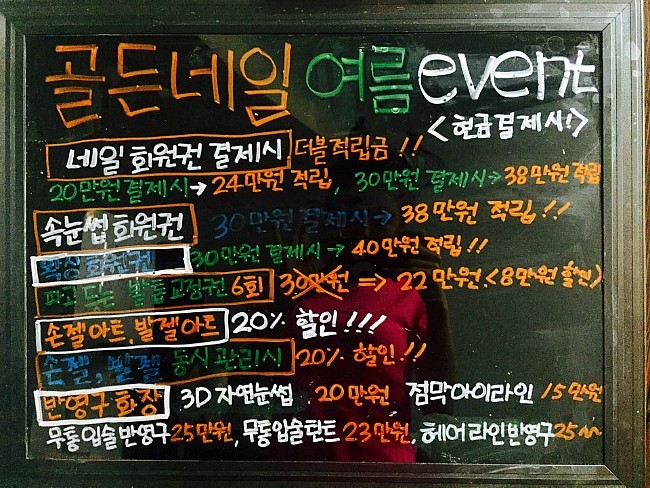 골든네일 여름 event
<현금결제시!>
네일 회원권 결제시 더블적립금!!
20만원 결제시→ 24만원 적립, 30만원 결제시→ 38만원 적립
속눈썹 회원권 30만원 결제시→ 38만원 적립!!
왁싱 회원권 30만원 결제시→ 40만원 적립!!
파고드는 발톱 교정권 6회 30만원 => 22만원<8만원 할인>
손젤아트, 발젤아트 20% 할인!!!
손젤, 발젤 동시 관리시 20% 할인!!
반영구화장 3D 자연눈썹 20만원 점막아이라인 15만원
무통입술반영구 25만원, 무통입술틴트 23만원, 헤어라인반영구 25~